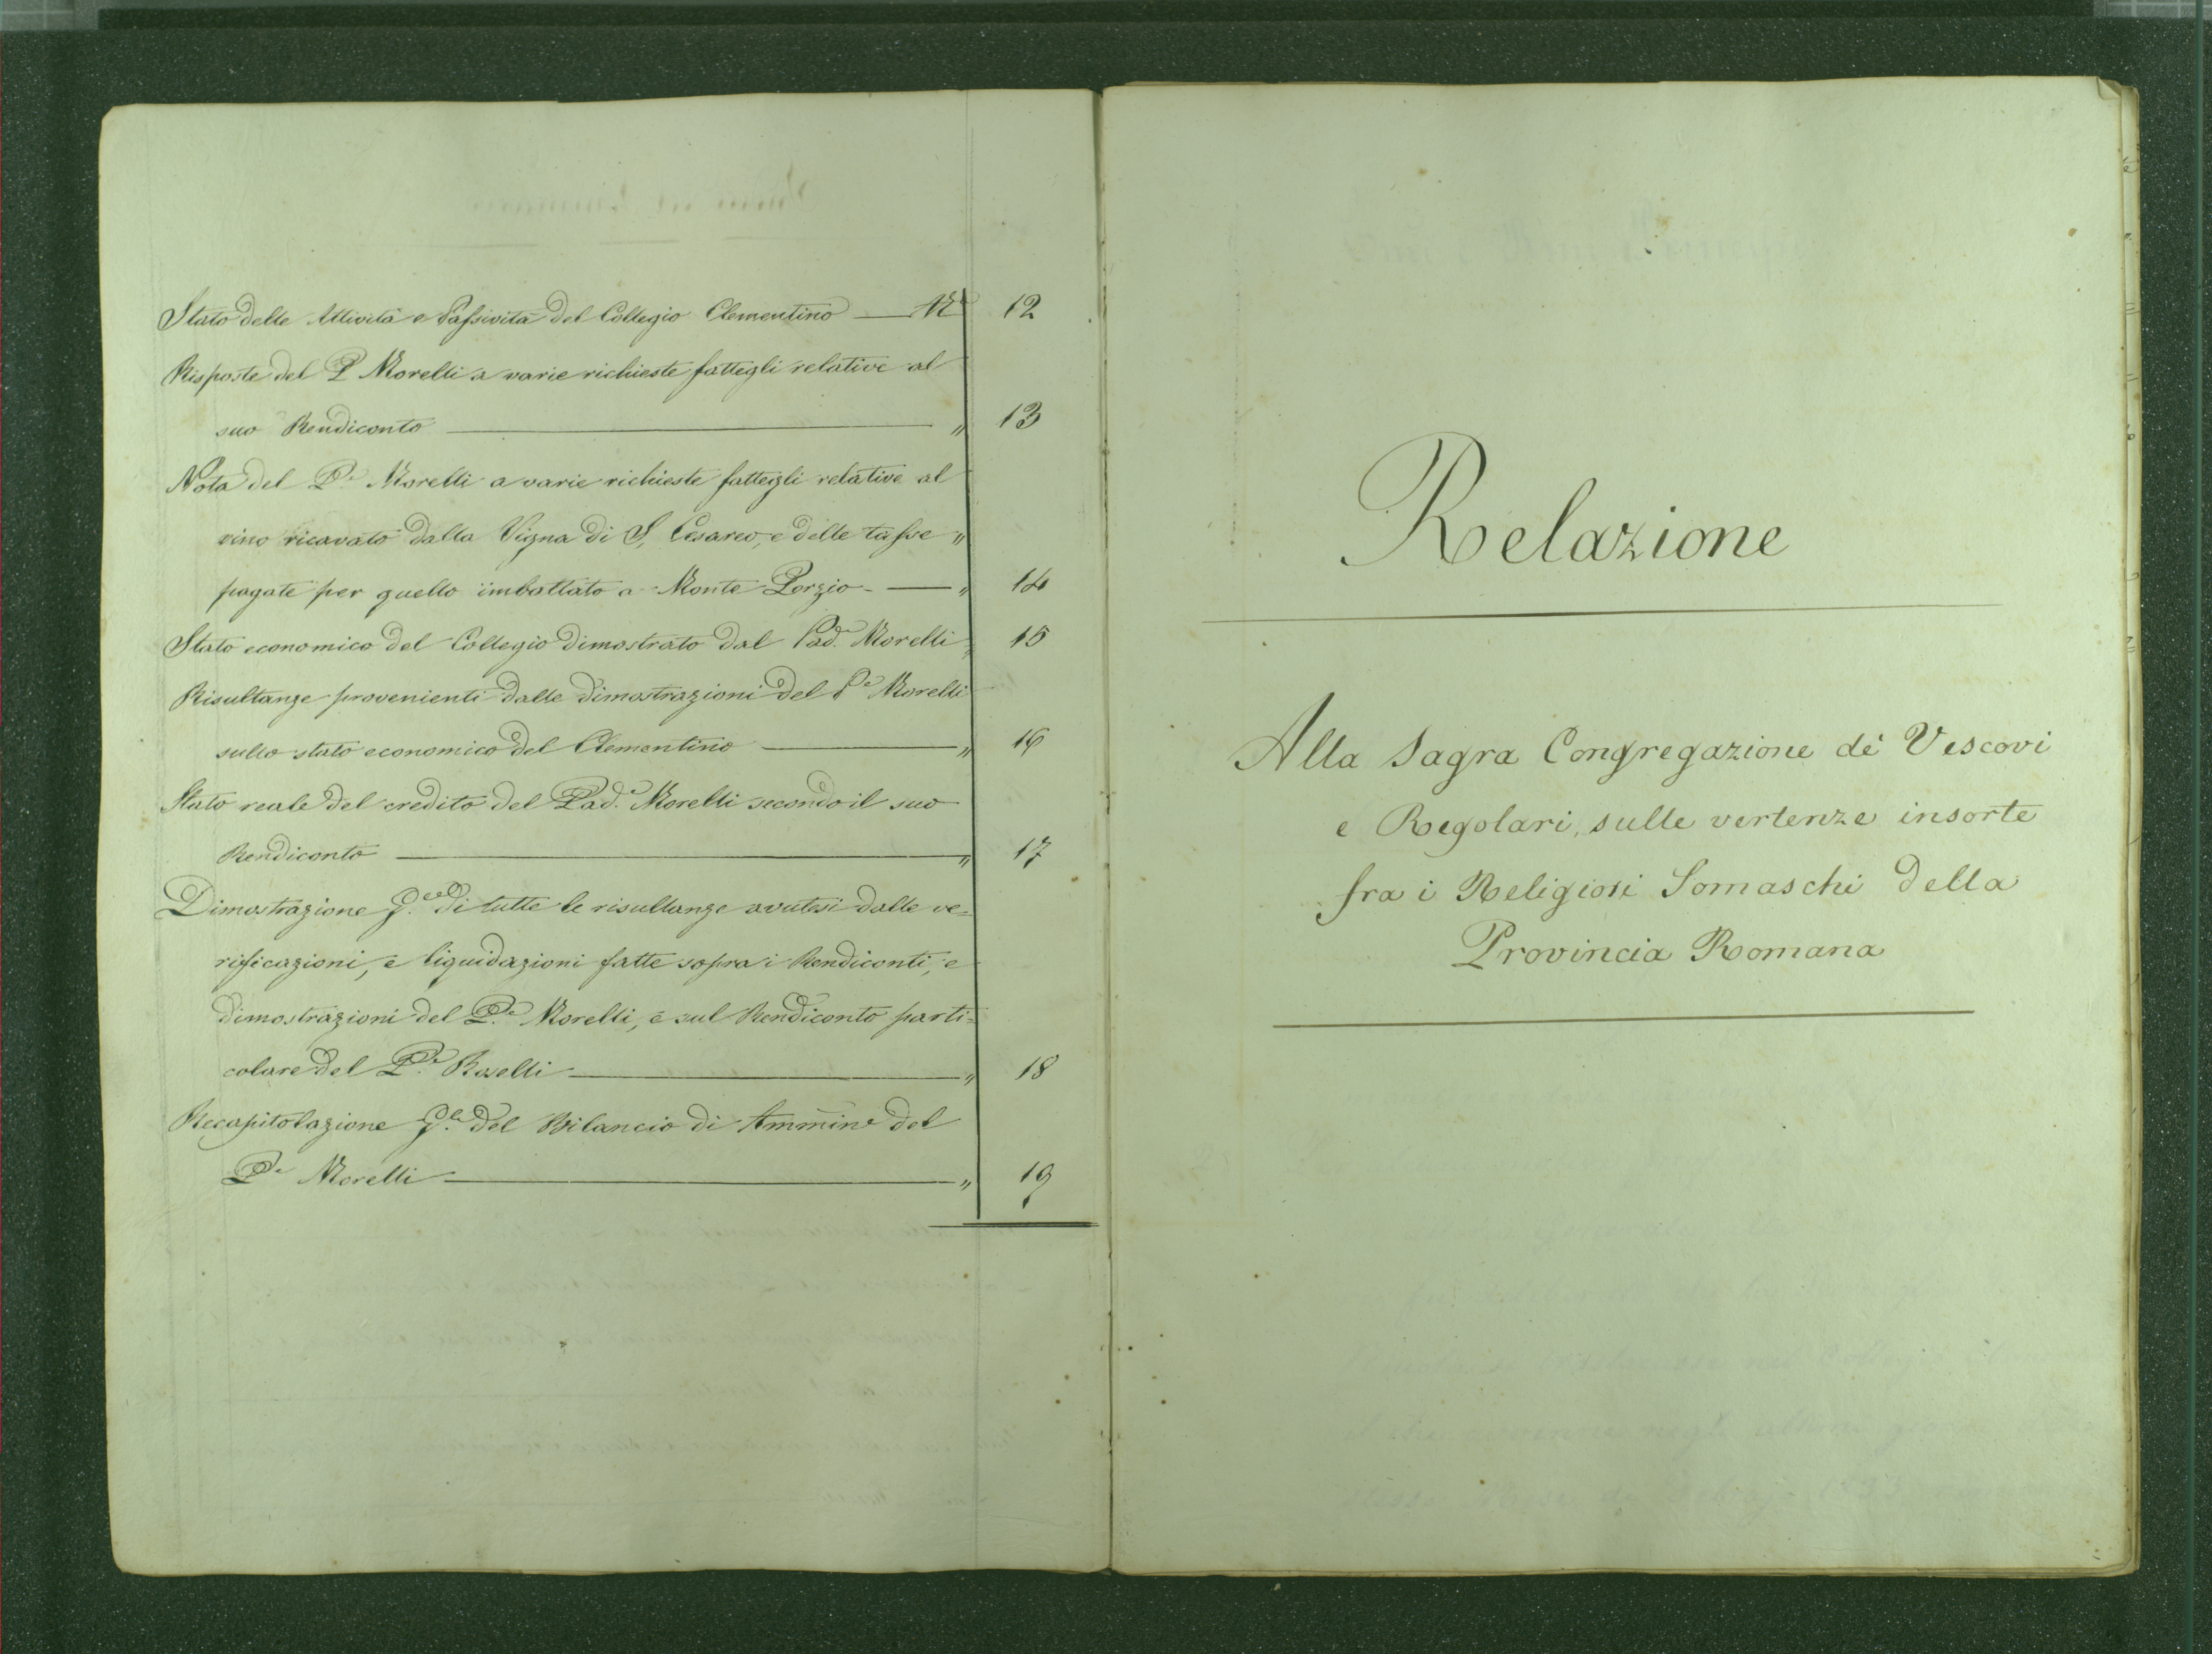 Stato delle Attività e Passività del Collegio Clementino — N.° 12
Risposte del P. Morelli a varie richieste fattegli relative al
suo Rendiconto — " 13
Nota del P.e Morelli a varie richieste fattegli relative al
vino ricavato dalla Vigna di S. Cesareo, e delle tasse "
pagate per quello imbottato a Monte Porzio — " 14
Stato economico del Collegio dimostrato dal Pad.e Morelli " 15
Risultanze provenienti dalle dimostrazioni del P.e Morelli
sullo stato economico del Clementino — " 16
Stato reale del credito del Pad.e Morelli secondo il suo
Rendiconto — " 17
Dimostrazione di tutte le risultanze avutesi dalle ve=
rificazioni, e liquidazioni fatte sopra i Rendiconti, e
dimostrazioni del P.e Morelli, e sul Rendiconto parti=
colare del P.e Roselli — " 18
Recapitolazione G.le del Bilancio di Ammin.e del
P.e Morelli — " 19
Relazione
Alla Sagra Congregazione de' Vescovi
e Regolari, sulle vertenze insorte
fra i Religiosi Somaschi della
Provincia Romana